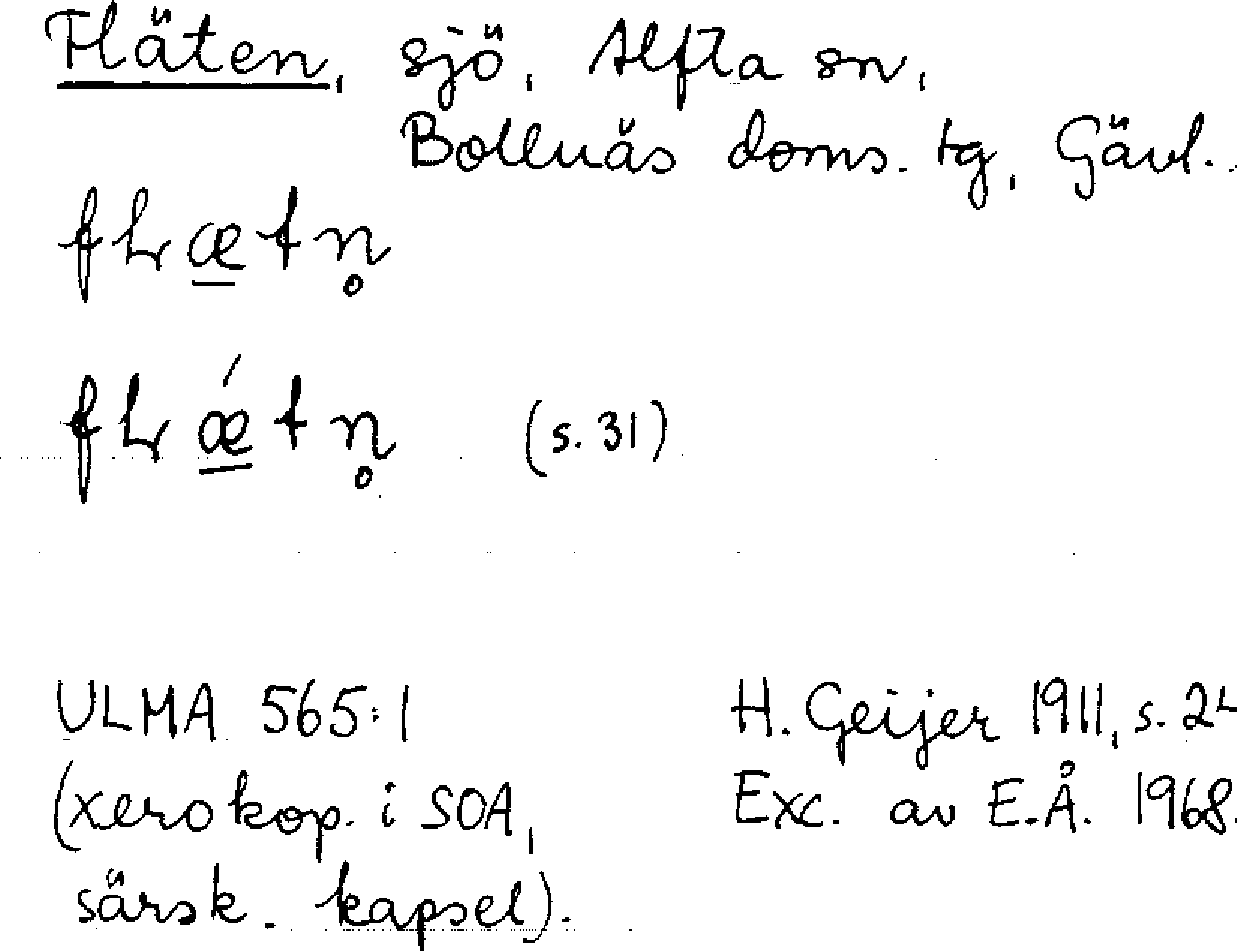 Fläten, sjö, Alfta sn,
Bollnäs doms. tg, Gävl.
fꞎæ̲tn̥
fꞎǽ̲tn̥ (s. 31)
ULMA 565:1
H. Geijer 1911, s. 24
(xerokop. i SOA,
Exc. av E.Å. 1968.
särsk. kapsel).